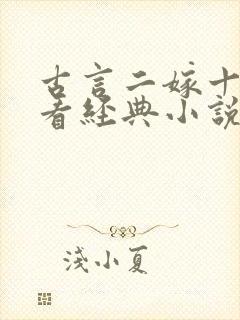 古言二嫁十
看經典小說
淺小夏